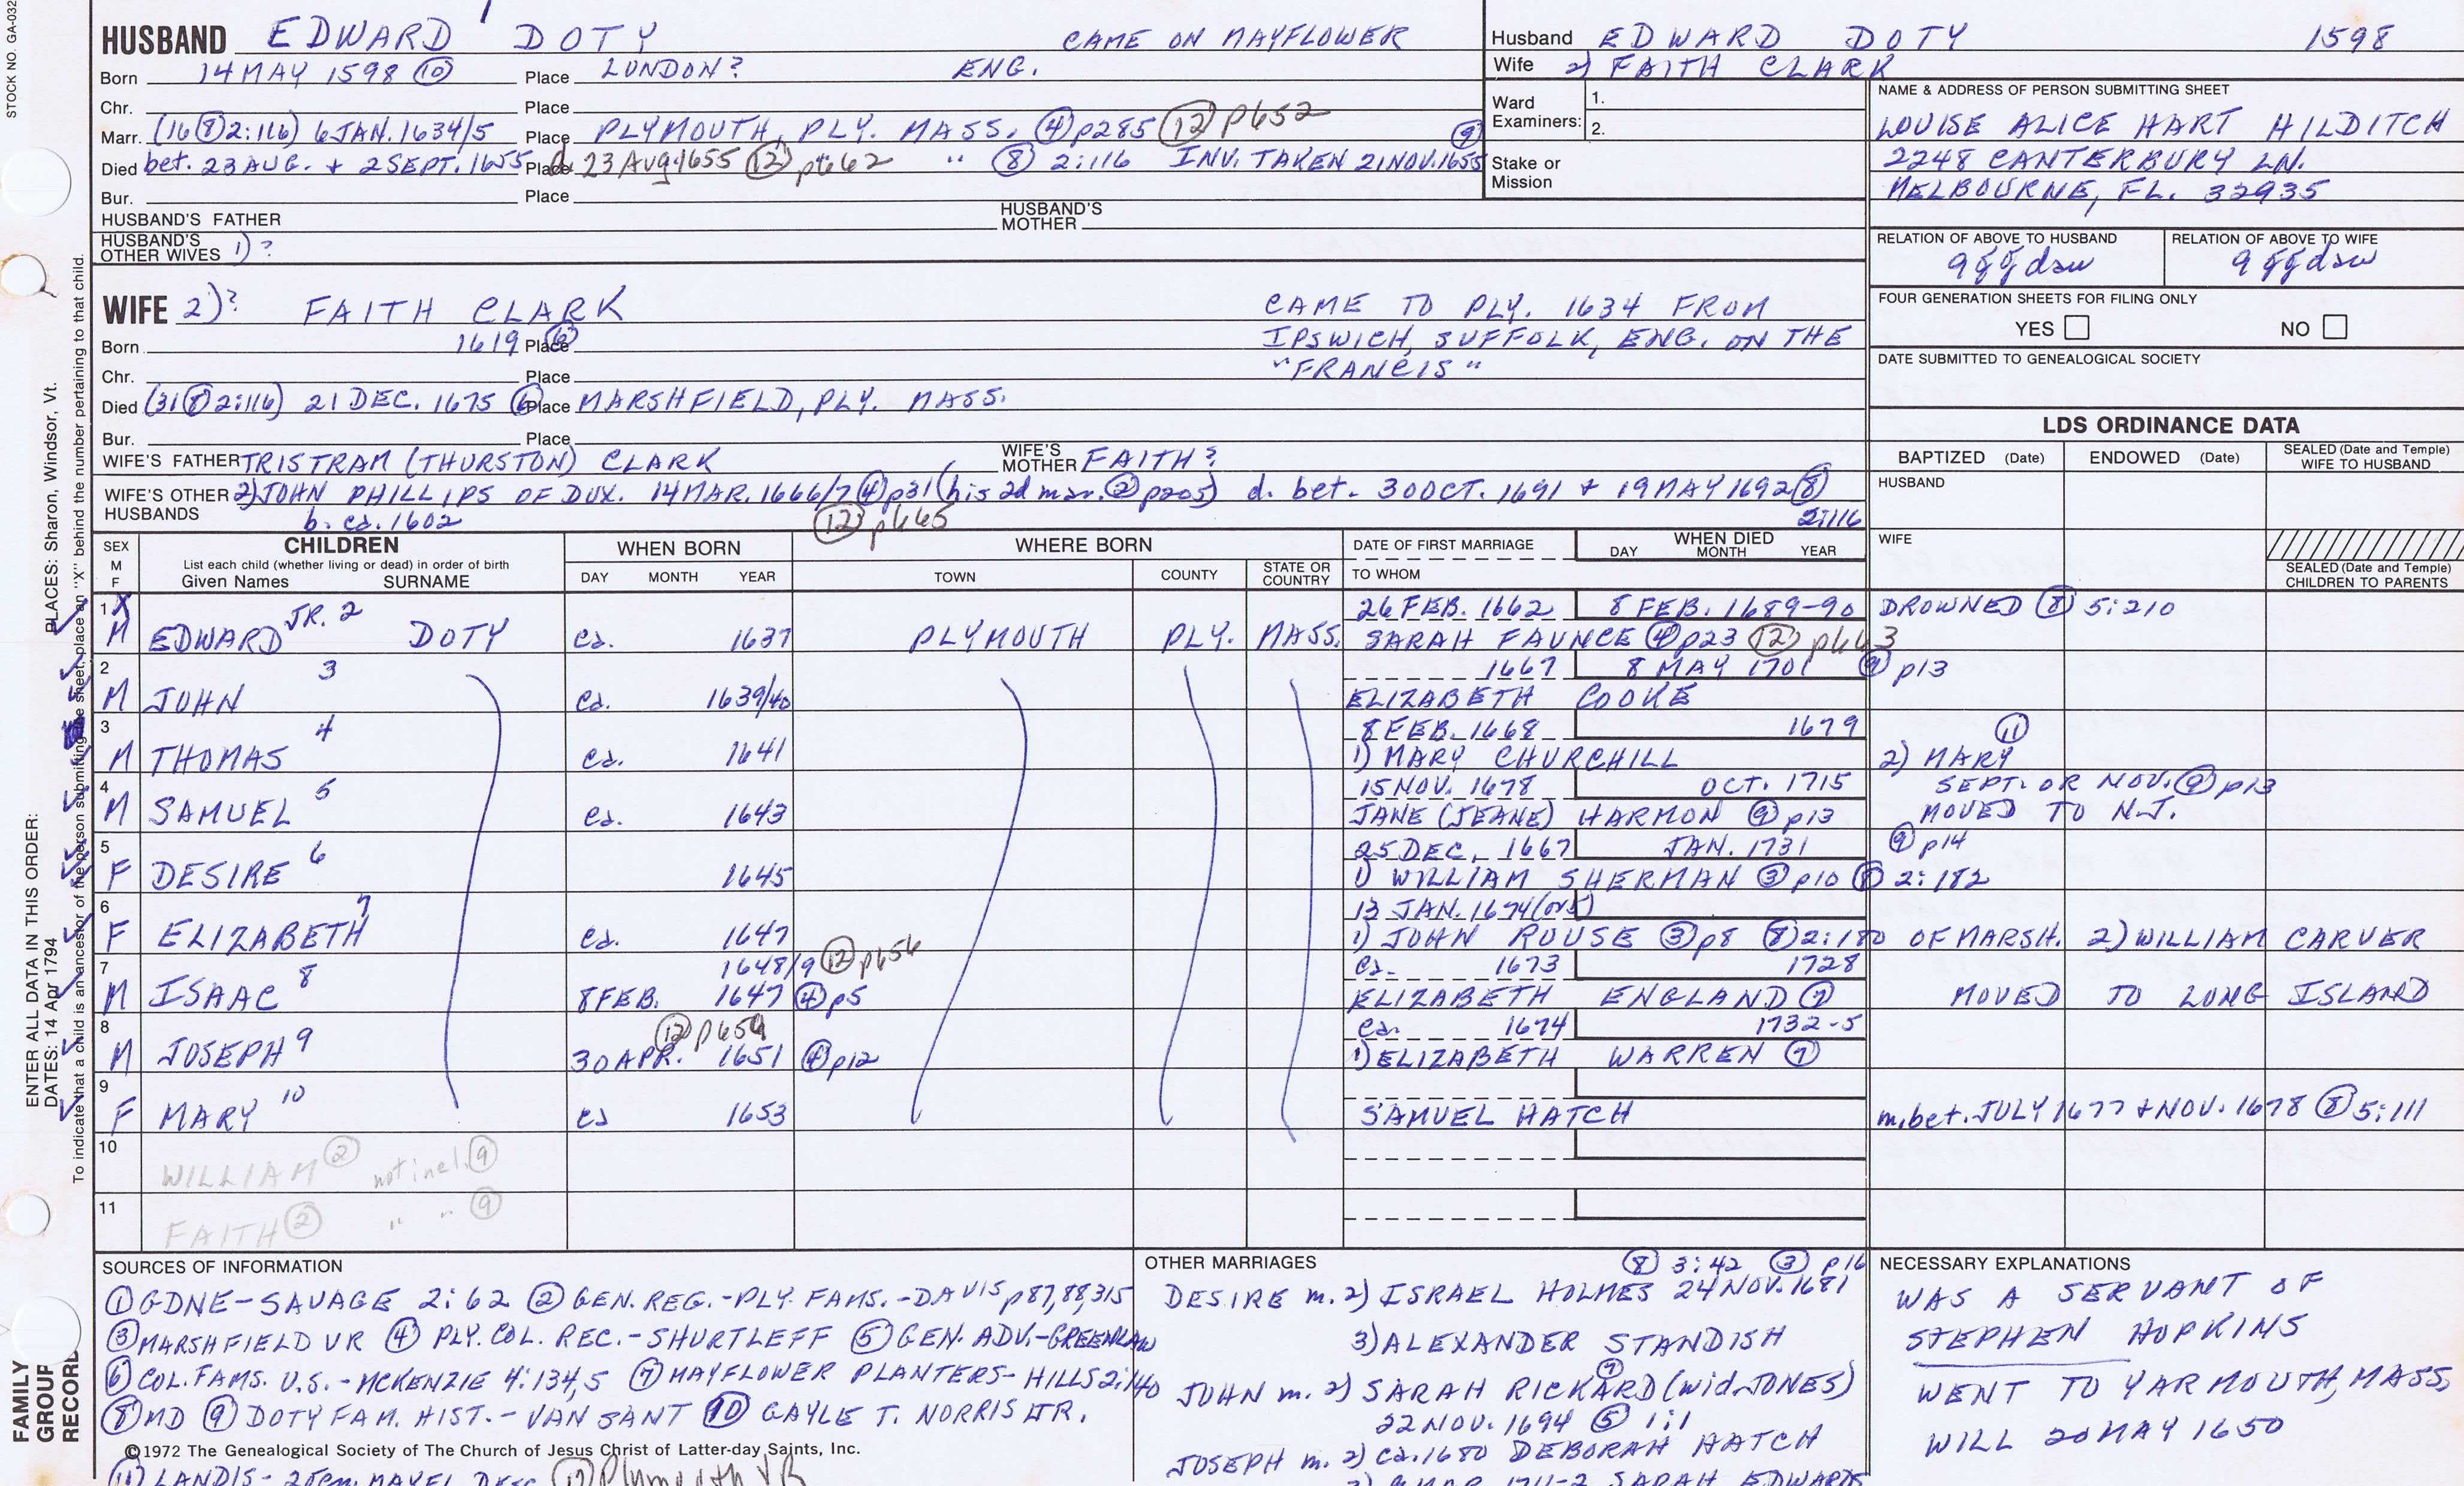 STOCK NO. GA-032
HUSBAND EDWARD 1 DOTY CAME ON MAYFLOWER
Born 14 MAY 1598 (10) Place LONDON? ENG.
Chr. Place
Marr. (16 (8) 2:116) 6 JAN. 1634/5 Place PLYMOUTH, PLY. MASS. (4) p285 (12) p652
Died bet. 23 AUG. + 2 SEPT. 1655 Place d 23 Aug 1655 (12) p662 " (8) 2:116 INV. TAKEN 21 NOV. 1655 (9)
Bur. Place
HUSBAND'S FATHER HUSBAND'S MOTHER
HUSBAND'S OTHER WIVES 1) ?
Husband EDWARD DOTY 1598
Wife 2) FAITH CLARK
Ward Examiners: 1.
2.
Stake or Mission
NAME & ADDRESS OF PERSON SUBMITTING SHEET
LOUISE ALICE HART HILDITCH
2248 CANTERBURY LN.
MELBOURNE, FL. 32935
RELATION OF ABOVE TO HUSBAND RELATION OF ABOVE TO WIFE
9ggdau 9ggdau
FOUR GENERATION SHEETS FOR FILING ONLY
YES NO
DATE SUBMITTED TO GENEALOGICAL SOCIETY
WIFE 2)? FAITH CLARK CAME TO PLY. 1634 FROM
Born 1619 (6) Place IPSWICH, SUFFOLK, ENG. ON THE
Chr. Place "FRANCIS"
Died (31 (8) 2:116) 21 DEC. 1675 (6) Place MARSHFIELD, PLY. MASS.
Bur. Place
WIFE'S FATHER TRISTRAM (THURSTON) CLARK WIFE'S MOTHER FAITH?
WIFE'S OTHER HUSBANDS 2) JOHN PHILLIPS OF DUX. 14 MAR. 1666/7 (4) p31 (his 2d mar. (2) p205) d. bet. 30 OCT. 1691 + 19 MAY 1692 (8) 2:116
b. ca. 1602 (12) p665
LDS ORDINANCE DATA
BAPTIZED (Date) ENDOWED (Date) SEALED (Date and Temple) WIFE TO HUSBAND
HUSBAND
WIFE
SEALED (Date and Temple) CHILDREN TO PARENTS
SEX M F CHILDREN WHEN BORN WHERE BORN DATE OF FIRST MARRIAGE WHEN DIED
List each child (whether living or dead) in order of birth
Given Names SURNAME DAY MONTH YEAR TOWN COUNTY STATE OR COUNTRY TO WHOM DAY MONTH YEAR
1 X 26 FEB. 1662 8 FEB. 1689-90 DROWNED (8) 5:210
M EDWARD JR. 2 DOTY ca. 1637 PLYMOUTH PLY. MASS. SARAH FAUNCE (4) p23 (12) p663
2 1667 8 MAY 1701 (9) p13
M JOHN 3 ca. 1639/40 ELIZABETH COOKE
3 8 FEB. 1668 1679 (11)
M THOMAS 4 ca. 1641 1) MARY CHURCHILL 2) MARY
4 15 NOV. 1678 OCT. 1715 SEPT. OR NOV. (9) p13
M SAMUEL 5 ca. 1643 JANE (JEANE) HARMON (9) p13 MOVED TO N.J.
5 25 DEC. 1667 JAN. 1731 (9) p14
F DESIRE 6 1645 1) WILLIAM SHERMAN (3) p10 (8) 2:182
6 13 JAN. 1674 (or 5)
F ELIZABETH 7 ca. 1647 1) JOHN ROUSE (3) p8 (8) 2:180 OF MARSH. 2) WILLIAM CARVER
7 1648/9 (12) p656 ca. 1673 1728
M ISAAC 8 8 FEB. 1647 (4) p5 ELIZABETH ENGLAND (7) MOVED TO LONG ISLAND
8 (12) p659 ca. 1674 1732-5
M JOSEPH 9 30 APR. 1651 (4) p12 1) ELIZABETH WARREN (7)
9
F MARY 10 ca 1653 SAMUEL HATCH m. bet. JULY 1677 + NOV. 1678 (8) 5:111
10 WILLIAM (2) not incl. (9)
11 FAITH (2) " " (9)
SOURCES OF INFORMATION
(1) GDNE-SAVAGE 2:62 (2) GEN. REG.-PLY. FAMS.-DAVIS p87,88,315
(3) MARSHFIELD VR (4) PLY. COL. REC.-SHURTLEFF (5) GEN. ADV.-GREENLAW
(6) COL. FAMS. U.S.-MCKENZIE 4:134,5 (7) MAYFLOWER PLANTERS-HILLS 2:140
(8) MD (9) DOTY FAM. HIST.-VAN SANT (10) GAYLE T. NORRIS JR.
©1972 The Genealogical Society of The Church of Jesus Christ of Latter-day Saints, Inc.
(11) LANDIS- (12) Plymouth VR
OTHER MARRIAGES (8) 3:42 (3) p16
DESIRE m. 2) ISRAEL HOLMES 24 NOV. 1681
3) ALEXANDER STANDISH
JOHN m. 2) SARAH RICKARD (7) (wid. JONES)
22 NOV. 1694 (5) 1:1
JOSEPH m. 2) ca. 1680 DEBORAH HATCH
3) 9 MAR 1711-2 SARAH EDWARDS
NECESSARY EXPLANATIONS
WAS A SERVANT OF
STEPHEN HOPKINS
WENT TO YARMOUTH, MASS.
WILL 20 MAY 1650
PLACES: Sharon, Windsor, Vt.
ENTER ALL DATA IN THIS ORDER:
DATES: 14 Apr 1794
To indicate that a child is an ancestor of the person submitting the sheet, place an "X" behind the number pertaining to that child.
FAMILY GROUP RECORD